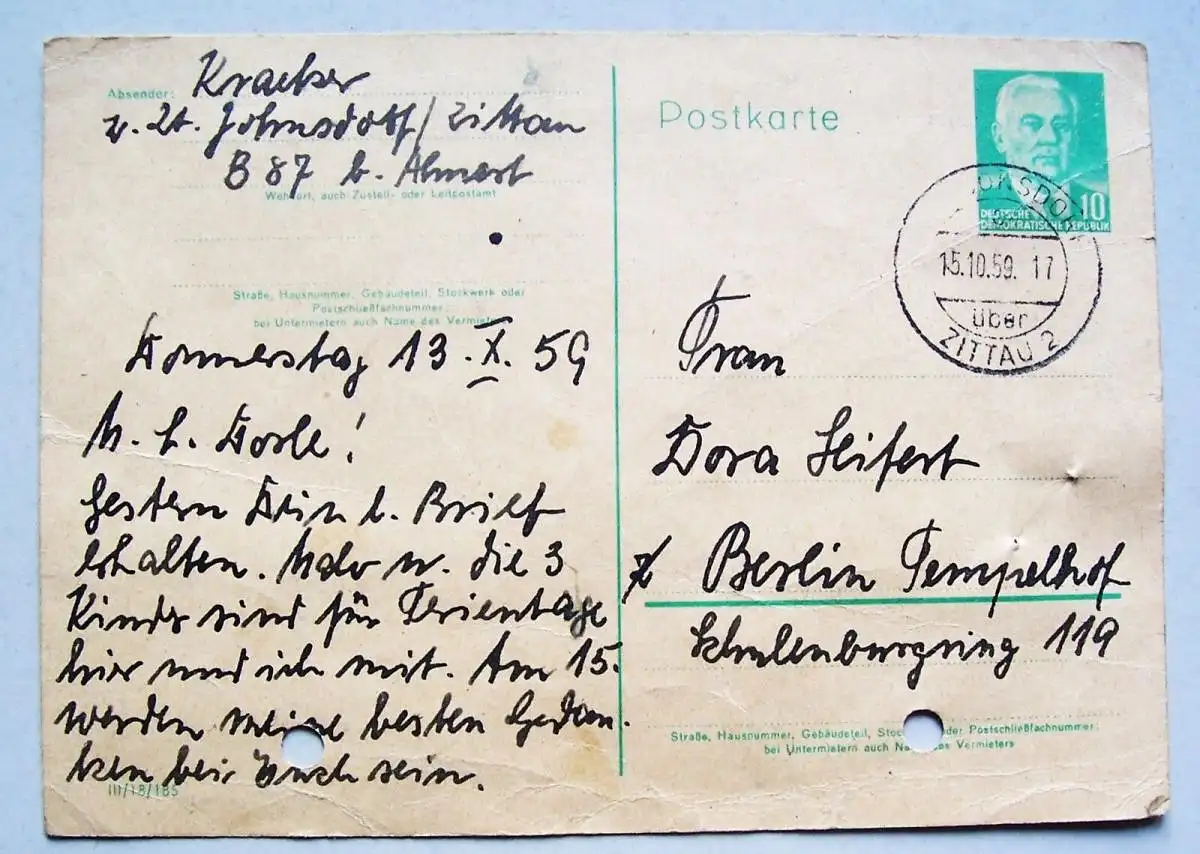 Absender: Kraeker
z. Zt. Johnsdorf/Zittau
B 87 b. Ahnert
Wohnort, auch Zustell- oder Leitpostamt
Straße, Hausnummer, Gebäudeteil, Stockwerk oder
Postschließfachnummer;
bei Untermietern auch Name des Vermieters
Donnerstag 13. X. 59
M. L. Dorle!
Gestern Dein l. Brief
erhalten. u. die 3
Kinder sind für Ferientage
hier und ich mit. Am 15.
werden meine besten Gedan-
ken bei Euch sein.
III/18/185
Postkarte
10
DEUTSCHE
DEMOKRATISCHE REPUBLIK
JONSDORF
15.10.59. 17
über
ZITTAU 2
Frau
Dora Seifert
Berlin Tempelhof
Schulenburgring 119
Straße, Hausnummer, Gebäudeteil, Stockwerk oder Postschließfachnummer;
bei Untermietern auch Name des Vermieters